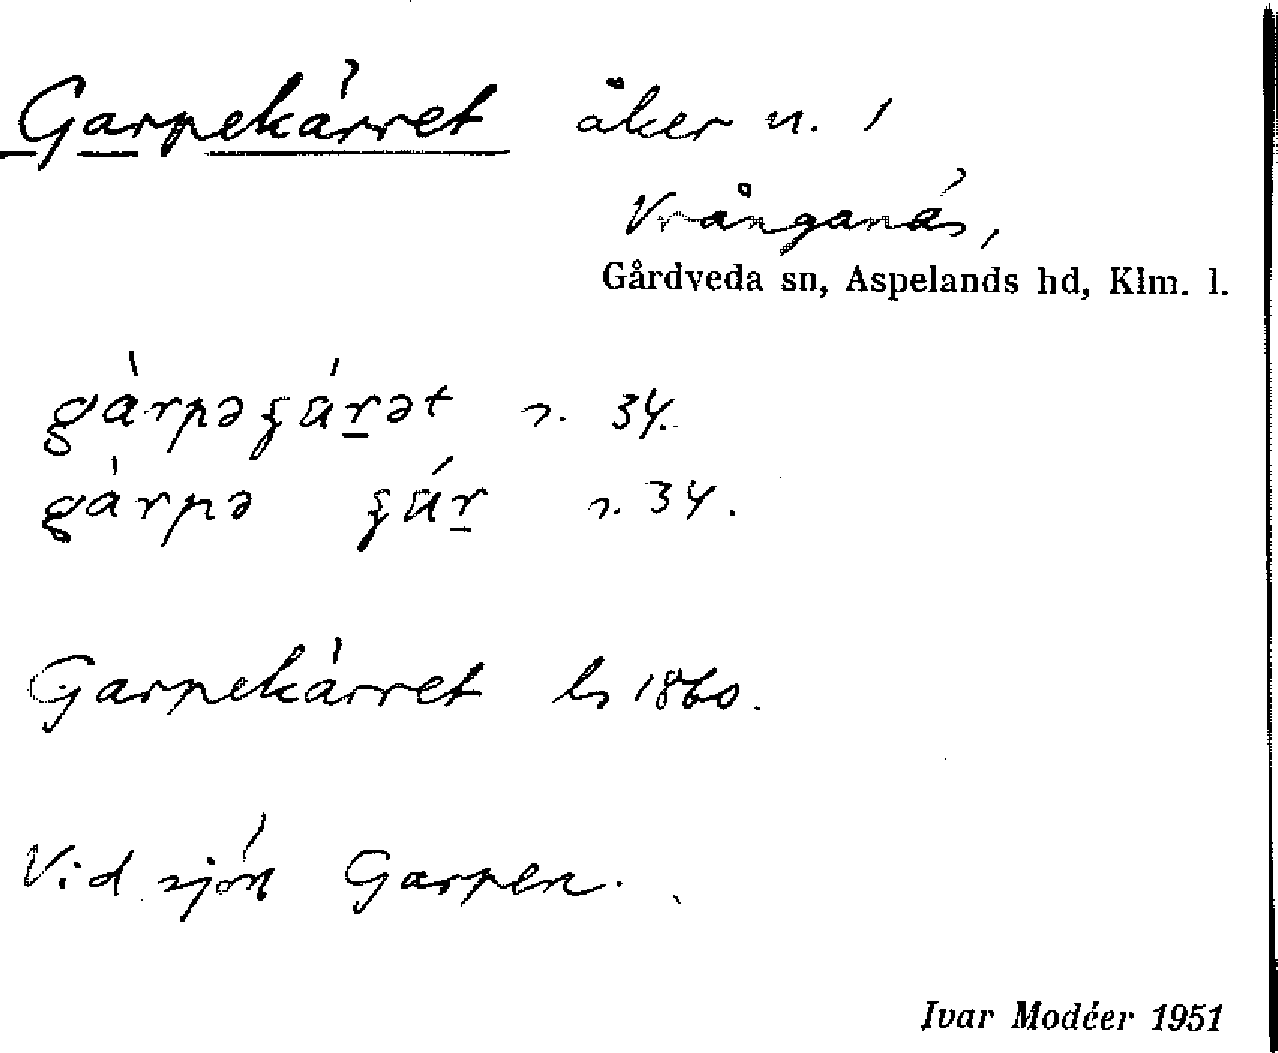 Garpekärret åker n. 1
Vrånganäs,
Gårdveda sn, Aspelands hd, Klm. l.
n. 34.
n. 34.
Garpekärret ls 1860.
Vid sjön Garpen.
Ivar Modéer 1951